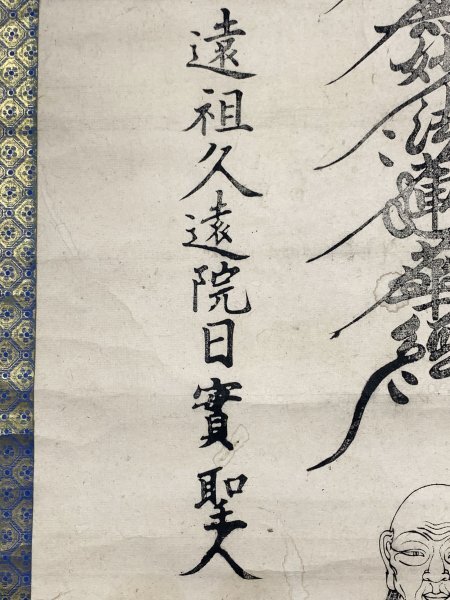 無妙法蓮華經
遠祖久遠院日實聖人